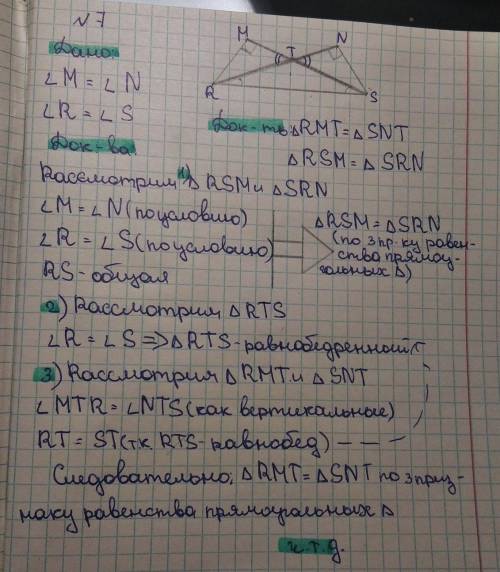 № 7
Дано:
∠M = ∠N
∠R = ∠S
M
T
N
R
S
Док-ть: △RMT = △SNT
△RSM = △SRN
Док-ва
Рассмотрим 1) △RSM и △SRN
∠M = ∠N (по условию)
∠R = ∠S (по условию)
RS - общая
△RSM = △SRN
(по 3 пр-ку равен-
ства прямоу-
гольных △)
2) Рассмотрим △RTS
∠R = ∠S => △RTS - равнобедренный
3) Рассмотрим △RMT и △SNT
∠MTR = ∠NTS (как вертикальные)
RT = ST (т.к. RTS - равнобед)
Следовательно, △RMT = △SNT по 3 приз-
наку равенства прямоугольных △
ч.т.д.